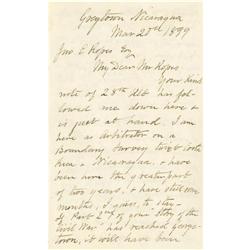 Greytown Nicaragua
Mar 20th 1899
Jno E Ropes Esq
My Dear Mr Ropes
Your kind
note of 28th ult has fol-
lowed me down here &
is just at hand. I am
here as arbitrator on a
Boundary Survey twixt Costa
Rica & Nicaragua. & have
been here the greater part
of two years, & have still some
months, I guess, to stay-
If Part 2nd of your Story of the
Civil War" has reached George-
town, it will have been